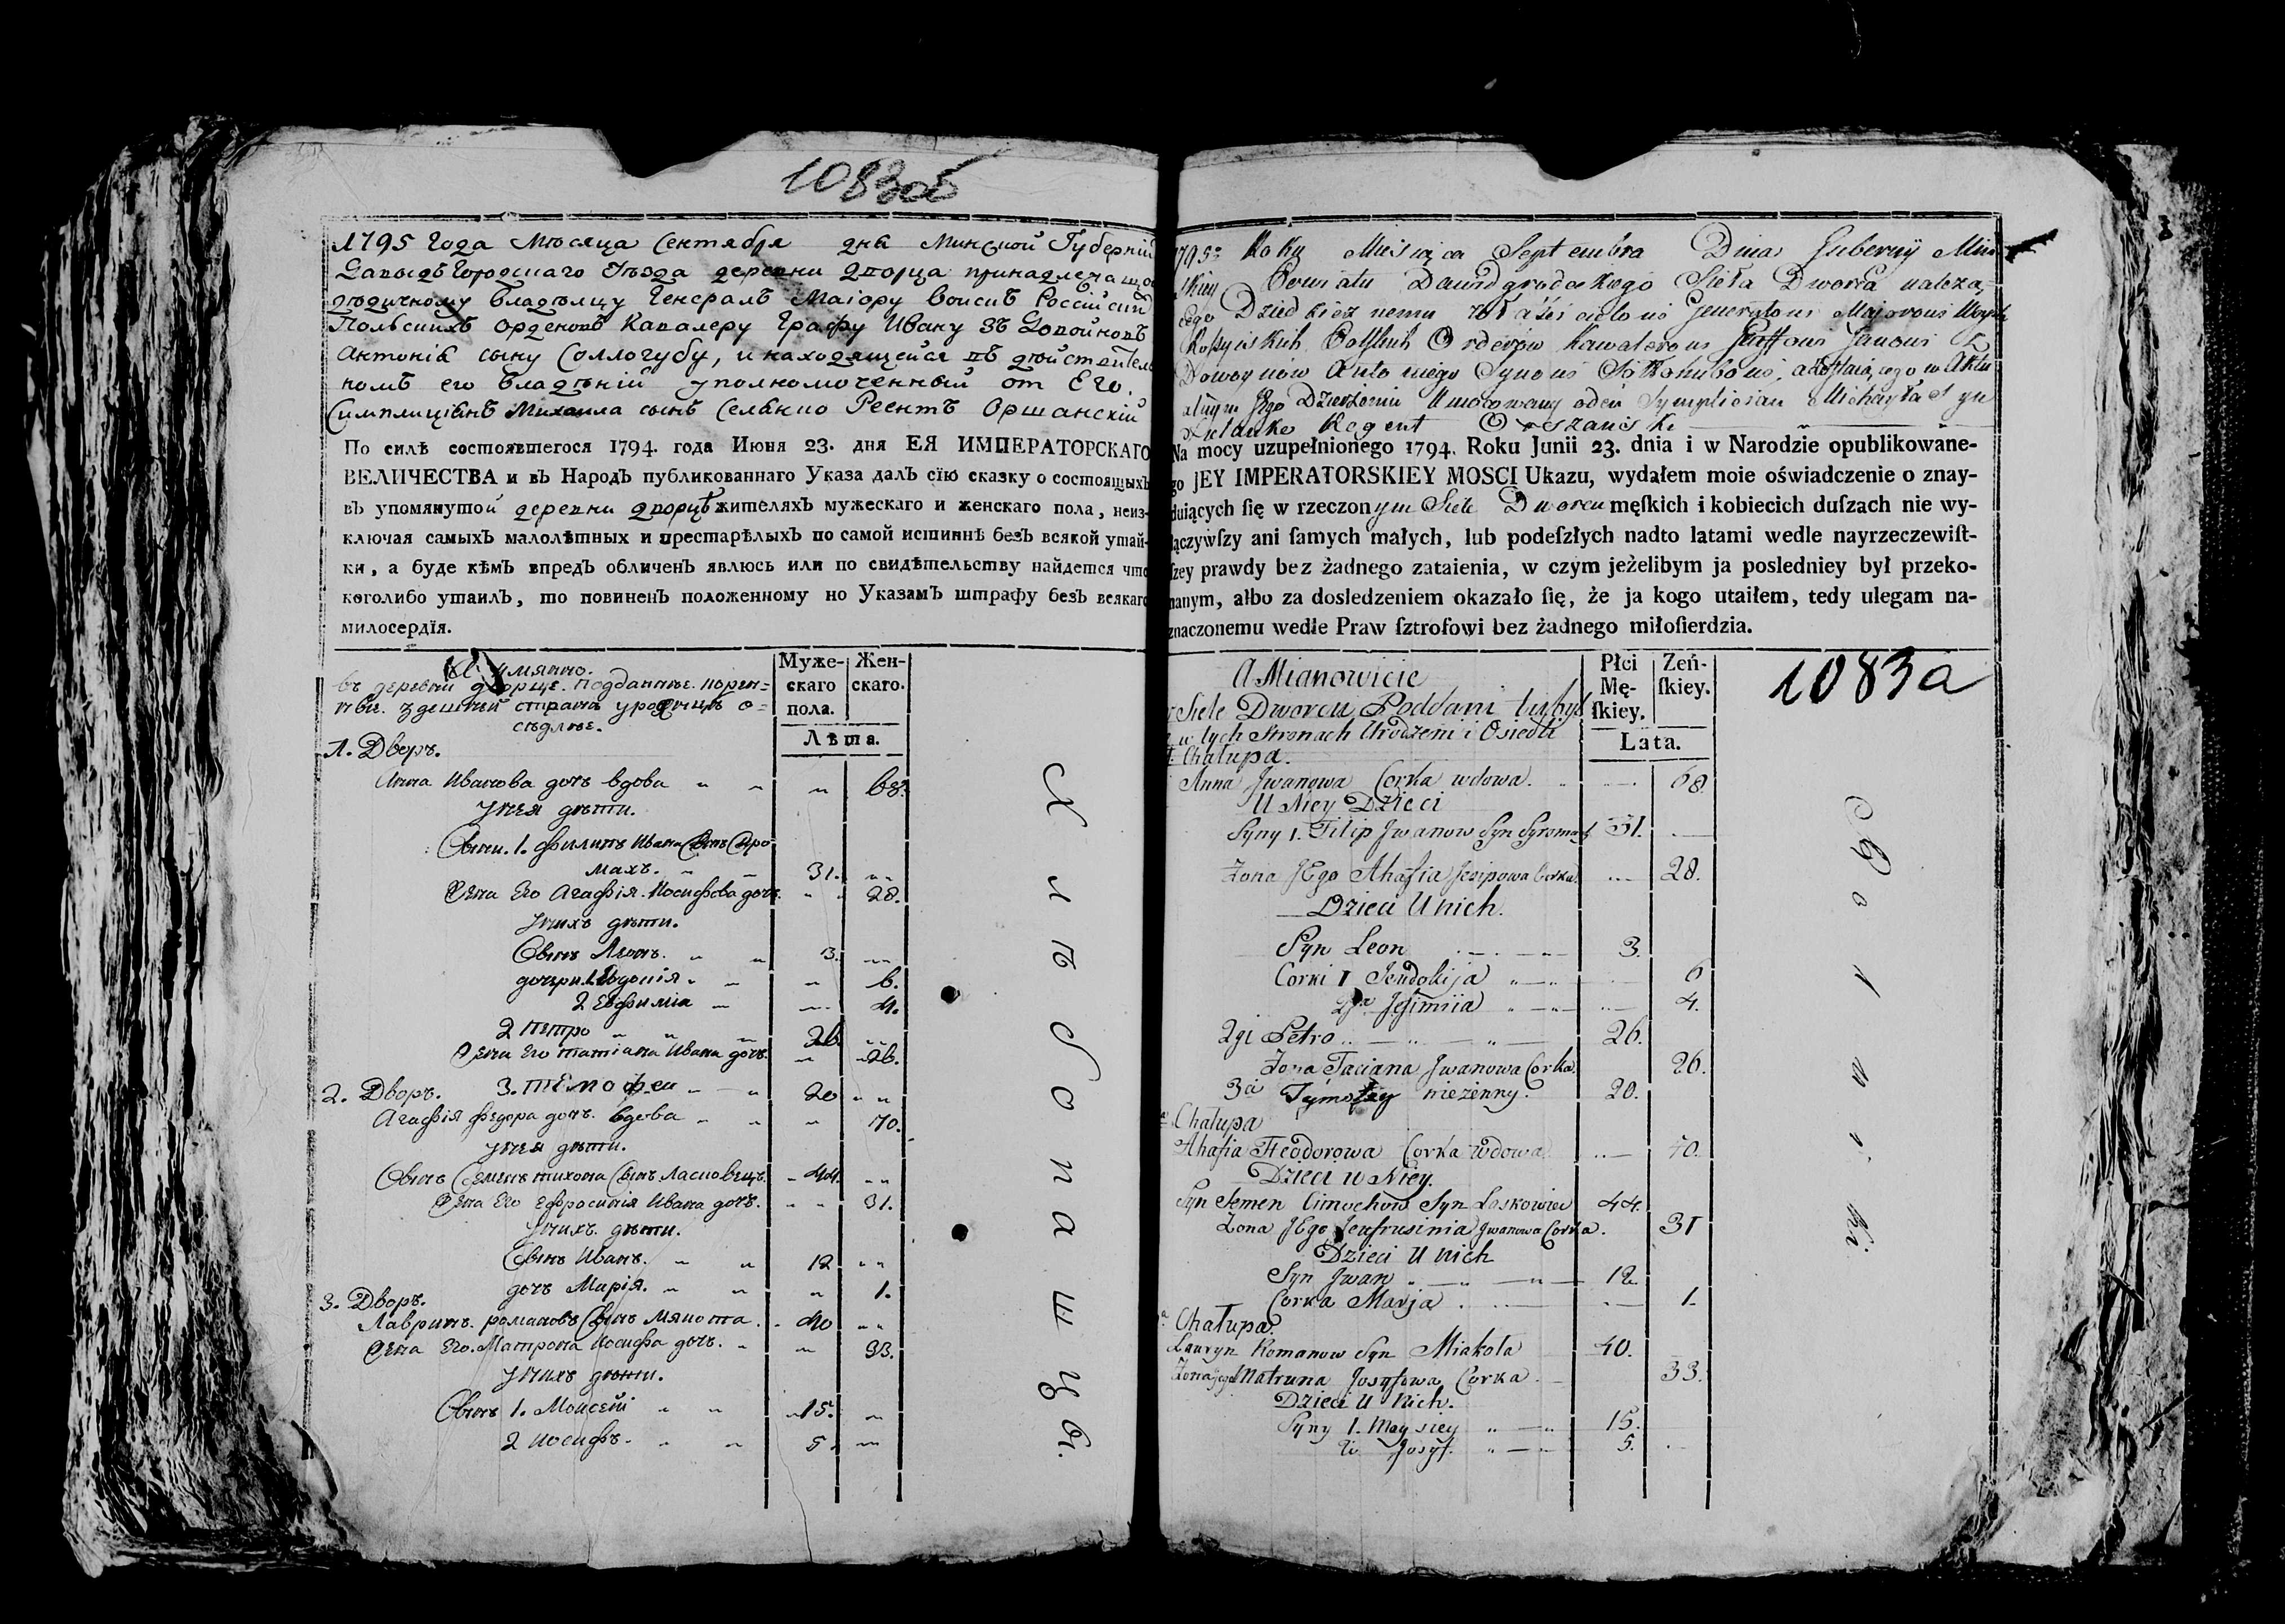 1083об
1795 Года Мѣсяца Сентября дня Минской Губерніи
Давыдъ Городскаго Уѣзда деревни Дворца принадлежащой
дѣдичному Владѣлцу Генералъ Маіору Воискъ Россійскихъ
Польскихъ орденовъ Кавалеру Графу Ивану зъ Довойновъ
Антонія сыну Соллогубу, и находящейся въ дѣйствител
номъ его владѣніи уполномоченный от Его
Симплиціянъ Михаила сынъ Реентъ Оршанскій
По силѣ состоявшегося 1794. года Июня 23. дня ЕЯ ИМПЕРАТОРСКАГО
ВЕЛИЧЕСТВА и въ Народъ публикованнаго Указа далъ сїю сказку о состоящыхъ
въ упомянутой деревни дворцѣ жителяхъ мужескаго и женскаго пола, неиз-
ключая самыхъ малолѣтных и престарѣлыхъ по самой истиннѣ безъ всякой утай-
ки, а буде кѣмъ впредъ обличенъ явлюсь или по свидѣтельству найдется что
коголибо утаилъ, то повиненъ положенному по Указамъ штрафу безъ всякаго
милосердїя.
А имянно.
въ деревни дворце. подданные.
здешней страны урожинцы о=
сѣдлые.
Муже-
скаго
пола.
Жен-
скаго.
Лѣта.
1. Дворъ.
Анна Иванова дочъ вдова 68.
У нея дѣти.
Сыны. 1. Филипъ Ивана Сынъ Сыро-
махъ. 31.
Жена Его Агафія Иосифова дочъ. 28.
У нихъ дѣти.
Сынъ Леонъ. 3.
дочери 1 Евдокія 6.
2 Евфимія 4.
2 Петро 26
Жена Его татіана Ивана дочъ. 26.
3. Тимофеи 20
2. Дворъ.
Агафія Федора дочъ. вдова 70.
У нея дѣти.
Сынъ Семенъ тихона Сынъ Ласковецъ. 44.
Жена Его Ефросинія Ивана дочъ. 31.
У нихъ. дѣти.
Сынъ Иванъ. 12
дочъ Марія. 1.
3. Дворъ.
Лавринъ. романовъ Сынъ Мякота 40
Жена Его. Матрона Иосифа дочъ. 33.
У нихъ дѣти.
Сынъ 1. Моисей 15.
2 Иосифъ. 5.
1795: Roku Miesiąca Septembra Dnia Gubernij Min
skiey Powiatu Dawidgrodeskiego Sieła Dworca należą-
cego Dziedzicznemu Właścicielowi Generałowi Majorowi Woysk
Rossyiskich Polskich Orderów Kawalerowi Graffowi Janowi Z
Dowoynów Antoniego Synowi Sołłohubowi,
Jego Dzierżeniu Umocowany oden Symplician Michayła Syn
Regent Orszański
Na mocy uzupełnionego 1794. Roku Junii 23. dnia i w Narodzie opublikowane-
go JEY IMPERATORSKIEY MOSCI Ukazu, wydałem moie oświadczenie o znay-
duiących ſię w rzeczonym Siele Dworcu męſkich i kobiecich duſzach nie wy-
łączywſzy ani ſamych małych, lub podeſzłych nadto latami wedle nayrzeczewiſt-
ſzey prawdy bez żadnego zataienia, w czym jeżelibym ja posledniey był przeko-
nanym, albo za dosledzeniem okazało ſię, że ja kogo utaiłem, tedy ulegam na-
znaczonemu wedle Praw ſztrofowi bez żadnego miłoſierdzia.
A Mianowicie
w Siele Dworcu Poddani
w tych Stronach Urodzeni i Osiedli
Płci
Mę-
ſkiey.
Zeń-
ſkiey.
Lata.
1083a
Chałupa.
Anna Jwanowa Corka wdowa. 68.
U Niey Dzieci
Syny 1. Filip Jwanow Syn Syromach 31.
Żona JEgo Ahafia Jesipowa Corka. 28.
Dzieci U nich.
Syn Leon 3.
Corki 1 Jeudokija 6
2ga Jefimija 4.
2gi Petro 26.
Żona Taciana Jwanowa Corka. 26.
3ci Tymofiey nieżenny. 20.
Chałupa
Ahafia Fteodorowa Corka wdowa 70.
Dzieci u Niey.
Syn Semen Cimochow Syn Laskowiec 44.
Żona JEgo Jeufrusinia Jwanowa Corka. 31
Dzieci U nich
Syn Jwan 12.
Corka Marja 1.
Chałupa.
Lauryn Romanow Syn Miakota 40.
Żona Jego Matruna Josyfowa Corka 33.
Dzieci U Nich.
Syny 1. Maysiey 15.
2i Josyf. 5.